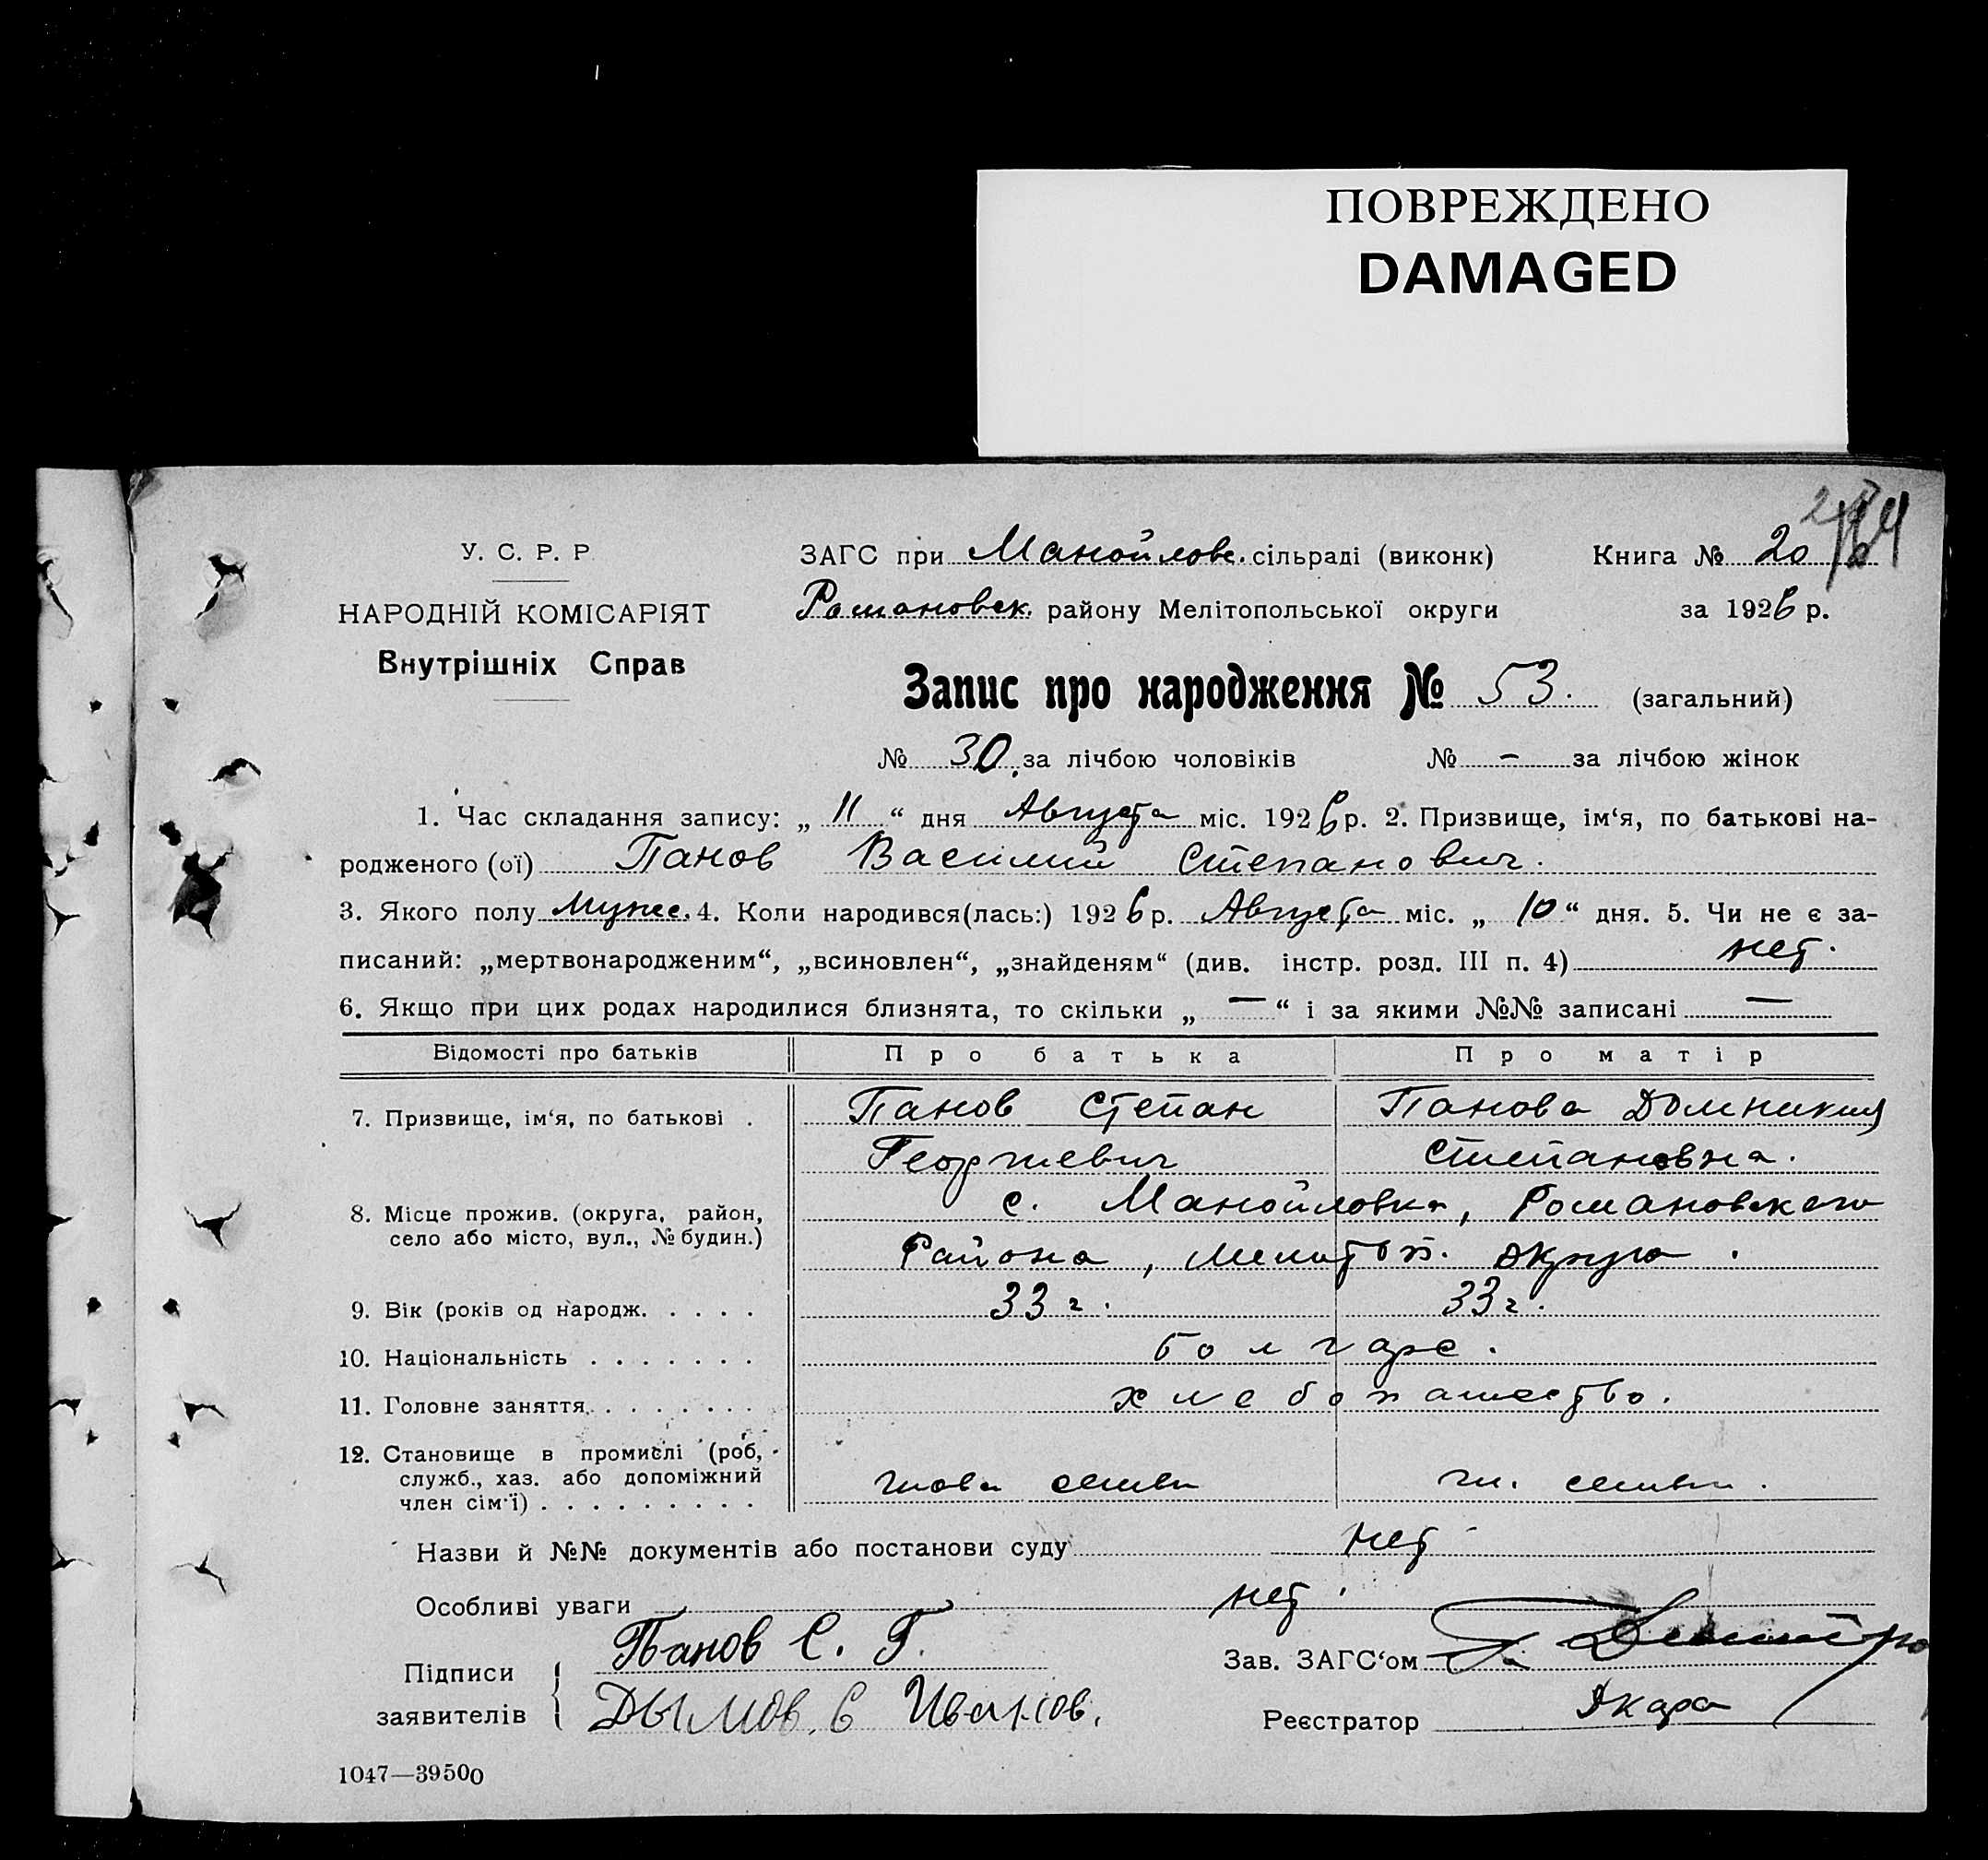 ПОВРЕЖДЕНО
DAMAGED
У. С. Р. Р.
НАРОДНІЙ КОМІСАРІЯТ
Внутрішніх Справ
ЗАГС при Манойловс. сільраді (виконк) Книга № 20
Романовск. району Мелітопольської округи за 1926 р.
Запис про народження № 53. (загальний)
№ 30. за лічбою чоловіків № – за лічбою жінок
1. Час складання запису: „ 11 “ дня Августа міс. 1926 р. 2. Призвище, ім‘я, по батькові на-
родженого (ої) Панов Василий Степанович.
3. Якого полу мужс. 4. Коли народився(лась:) 1926 р. Августа міс. „ 10 “ дня. 5. Чи не є за-
писаний: „мертвонародженим“, „всиновлен“, „знайденям“ (див. інстр. розд. III п. 4) нет.
6. Якщо при цих родах народилися близнята, то скільки „ — “ і за якими №№ записані —
Відомості про батьків Про батька Про матір
7. Призвище, ім‘я, по батькові . Панов Степан Панова Домникия
Георгиевич Степановна.
8. Місце прожив. (округа, район, с. Манойловка, Романовского
село або місто, вул., № будин.) Района, Мелитоп. округа.
9. Вік (років од народж. . . . . 33 г. 33 г.
10. Національність . . . . . . . болгаре.
11. Головне заняття . . . . . . . хлебопашество.
12. Становище в промислі (роб,
служб., хаз. або допоміжний глава семьи чл. семьи.
член сім‘ї) . . . . . . . . .
Назви й №№ документів або постанови суду нет
Особливі уваги нет.
Підписи Панов С. Г. Зав. ЗАГС‘ом
заявителів Дымов. С Иванов. Реєстратор
1047—39500